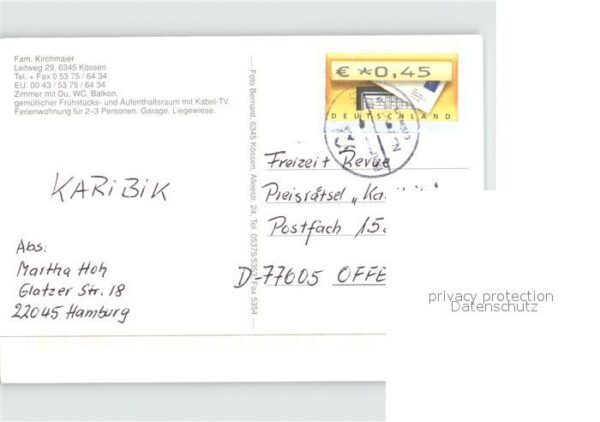 Fam. Kirchmaier
Leitweg 29, 6345 Kössen
Tel. + Fax 0 53 75 / 64 34
EU: 00 43 / 53 75 / 64 34
Zimmer mit Du, WC, Balkon,
gemütlicher Frühstücks- und Aufenthaltsraum mit Kabel-TV.
Ferienwohnung für 2–3 Personen. Garage. Liegewiese.
KARIBIK
Abs:
Martha Hoh
Glatzer Str. 18
22045 Hamburg
Foto Bernard, 6345 Kössen, Alleestr. 24, Tel. 05375/
Fax 6354
€ *0,45
DEUTSCHLAND
Freizeit Revue
Preisrätsel „Ka
Postfach 15
D-77605 OFFE
privacy protection
Datenschutz